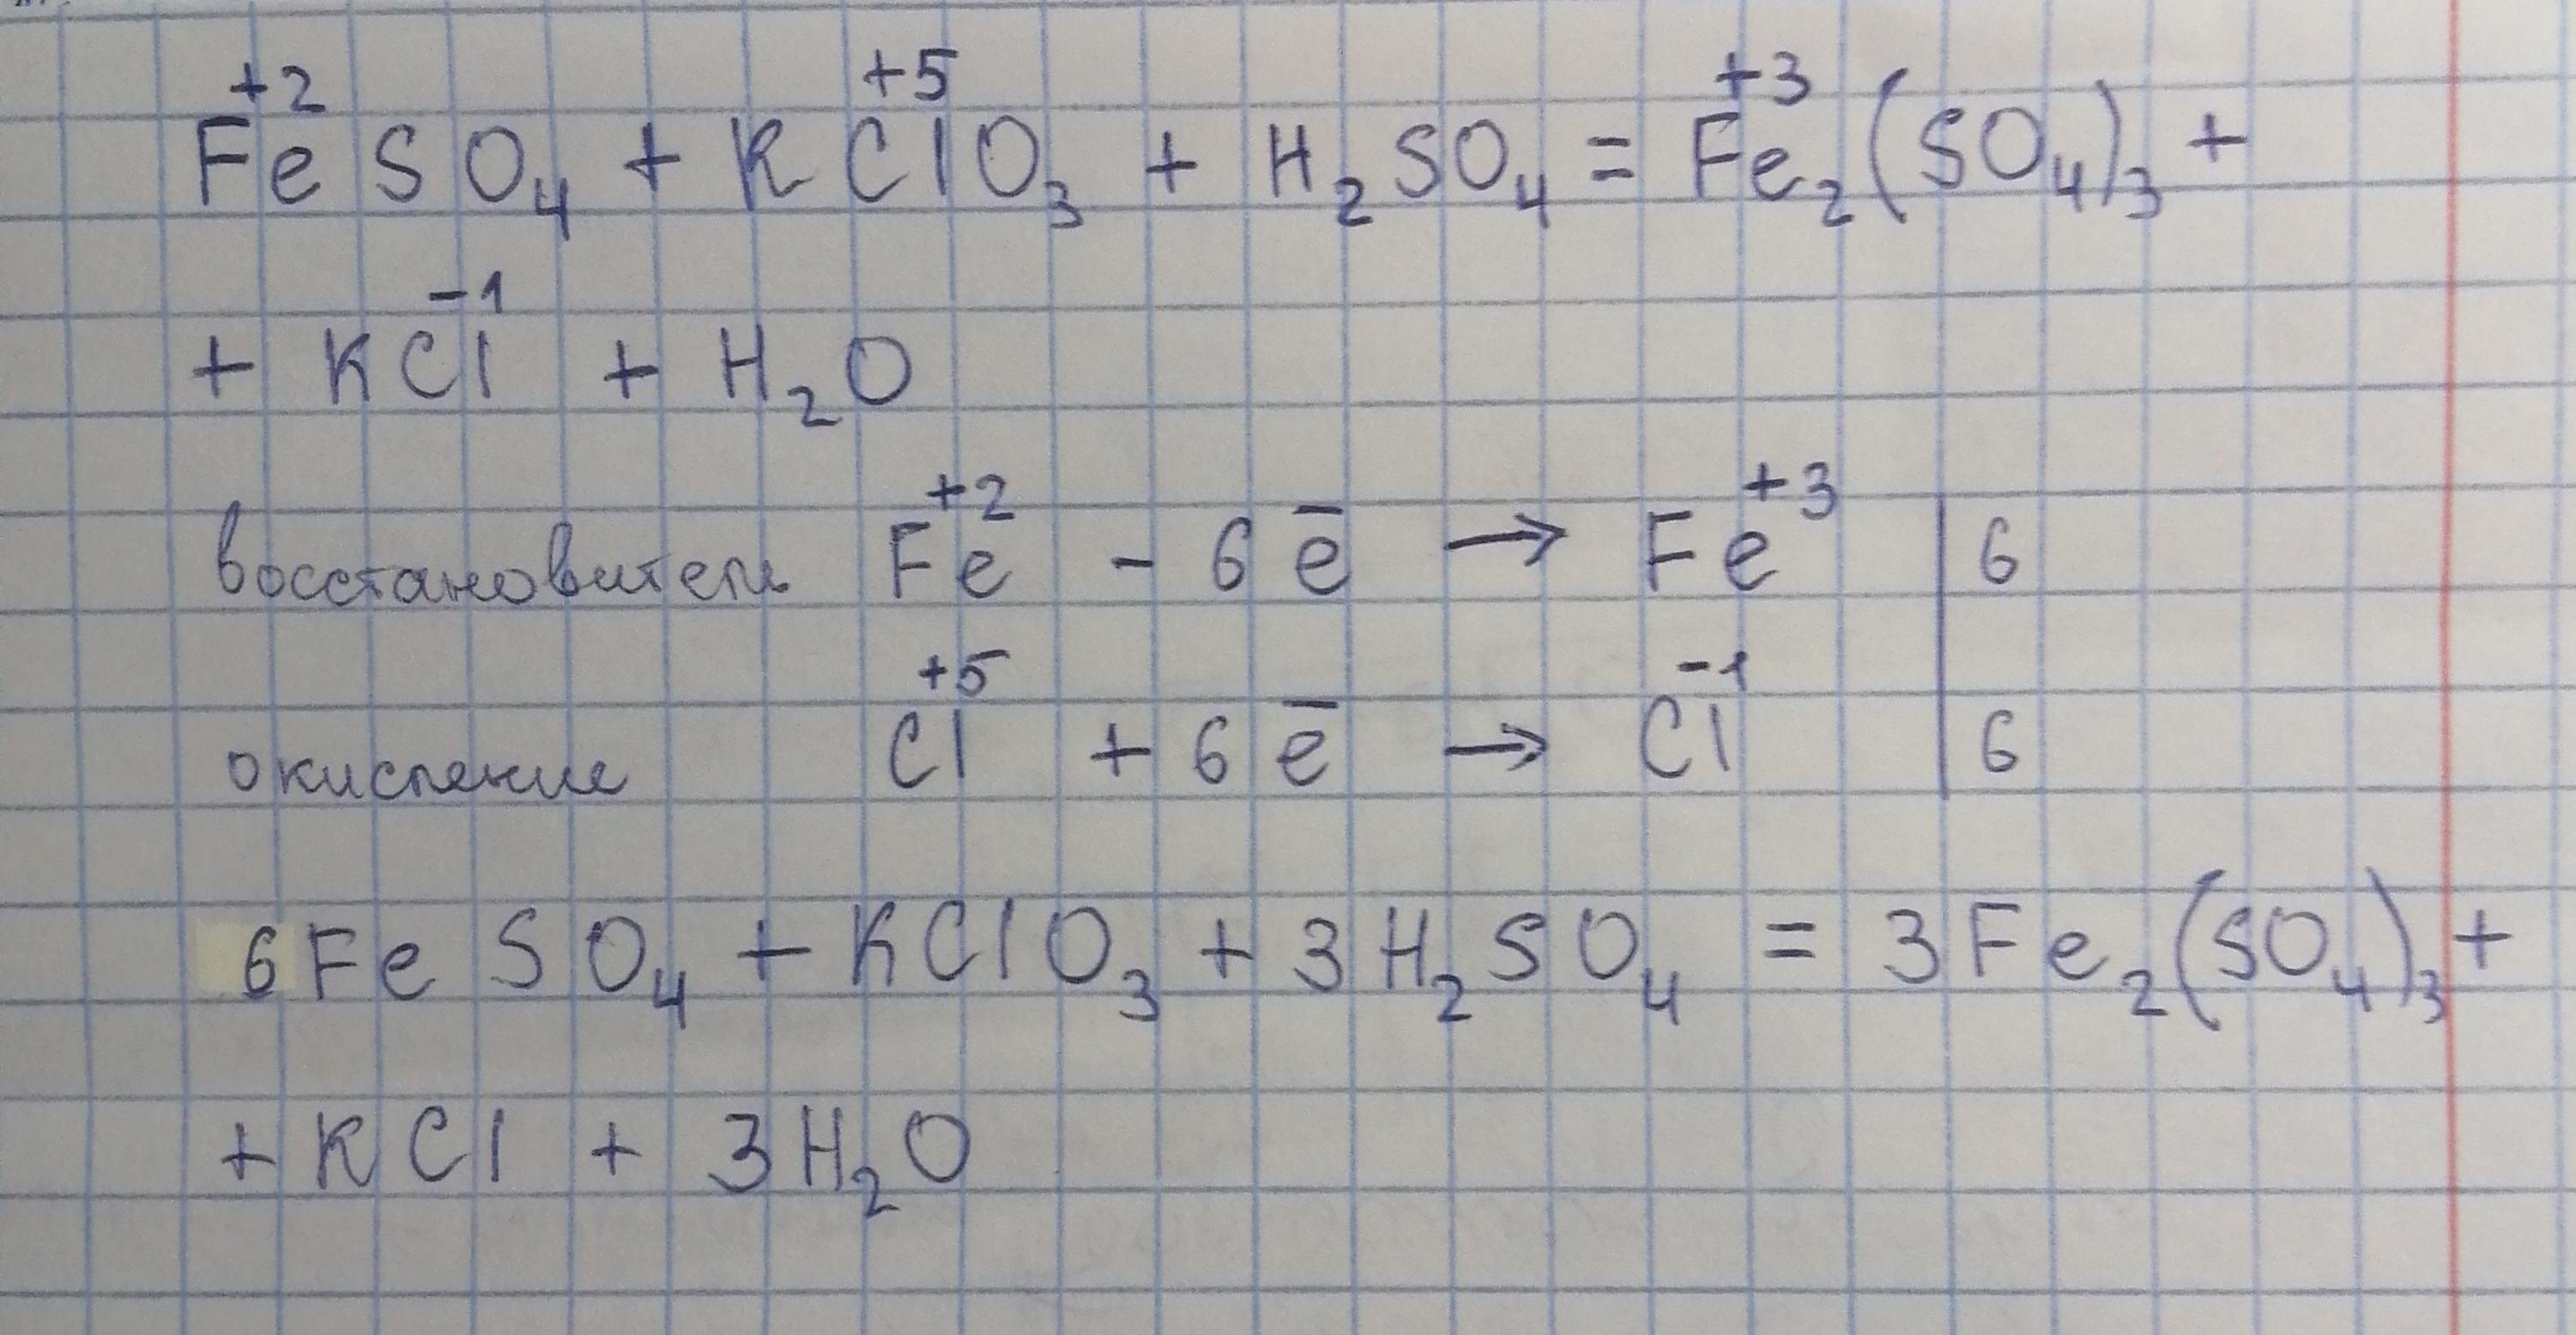 +2 +5 +3
FeSO₄ + KClO₃ + H₂SO₄ = Fe₂(SO₄)₃ +
-1
+ KCl + H₂O
восстановитель Fe⁺² - 6ē → Fe⁺³ | 6
окисление Cl⁺⁵ + 6ē → Cl⁻¹ | 6
6FeSO₄ + KClO₃ + 3H₂SO₄ = 3Fe₂(SO₄)₃ +
+ KCl + 3H₂O